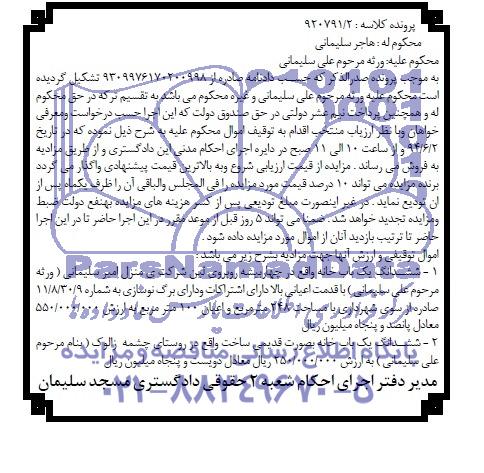 پرونده کلاسه : ۹۲۰۷۹۱/۲
محکوم له : هاجر سلیمانی
محکوم علیه: ورثه مرحوم علی سلیمانی
به موجب پرونده صدرالذکر که حسب دادنامه صادره از ۹۳۰۹۹۷۶۱۷۰۲۰۰۹۹۸ تشکیل گردیده
است محکوم علیه ورثه مرحوم علی سلیمانی و غیره محکوم می باشد به تقسیم ترکه در حق محکوم
له و همچنین پرداخت نیم عشر دولتی در حق صندوق دولت که این اجرا حسب درخواست ومعرفی
خواهان وبا نظر ارزیاب منتخب اقدام به توقیف اموال محکوم علیه به شرح ذیل نموده که در تاریخ
۹۴/۶/۲ و از ساعت ۱۰ الی ۱۱ صبح در دایره اجرای احکام مدنی این دادگستری و از طریق مزایده
به فروش می رساند . مزایده از قیمت ارزیابی شروع وبه بالاترین قیمت پیشنهادی واگذار می گردد
برنده مزایده می تواند ۱۰ درصد قیمت مورد مزایده را فی المجلس والباقی آن را ظرف یکماه پس از
آن تودیع نماید . در غیر اینصورت مبلغ تودیعی پس از کسر هزینه های مزایده بهنفع دولت ضبط
ومزایده تجدید خواهد شد . ضمنا می تواند ۵ روز قبل از موعد مقرر در این اجرا حاضر تا در این اجرا
حاضر تا ترتیب بازدید آنان از اموال مورد مزایده داده شود .
اموال توقیفی و ارزش آنها جهت مزایده بشرح زیر می باشد :
۱ - ششدانگ یک باب خانه واقع در چهاربیشه روبروی لین شرکت ی منزل امیر سلیمانی ( ورثه
مرحوم علی سلیمانی ) با قدمت اعیانی بالا دارای اشتراکات ودارای برگ نوسازی به شماره ۱۱/۸/۳۰/۹
صادره از سوی شهرداری با مساحت ۲۴۸ مترمربع و اعیان ۱۰۰ متر مربع به ارزش ۵۵۰/۰۰۰/۰۰۰
معادل پانصد و پنجاه میلیون ریال
۲ - ششدانگ یک باب خانه بصورت قدیمی ساخت واقع در روستای چشمه زالوک ( بنام مرحوم
علی سلیمانی ) به ارزش ۲۵۰/۰۰۰/۰۰۰ ریال معادل دویست و پنجاه میلیون ریال
مدیر دفتر اجرای احکام شعبه ۲ حقوقی دادگستری مسجد سلیمان
ParsNamadData
پایگاه اطلاع رسانی مناقصه و مزایده
۰۲۱-۸۸۳۴۹۶۷۰-۵